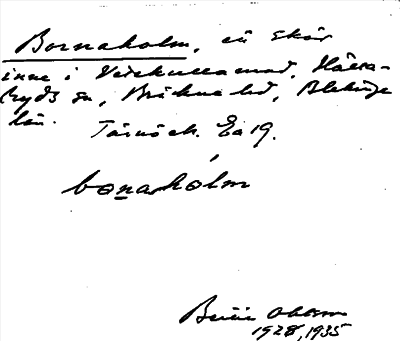 Bornaholm, en skär
inne i Vekullamad, Hälla-
ryds sn, Bräkne hd, Blekinge
län. Tärnö ek. Ea 19.
bonaholm
Bertil Ohlson
1928, 1935